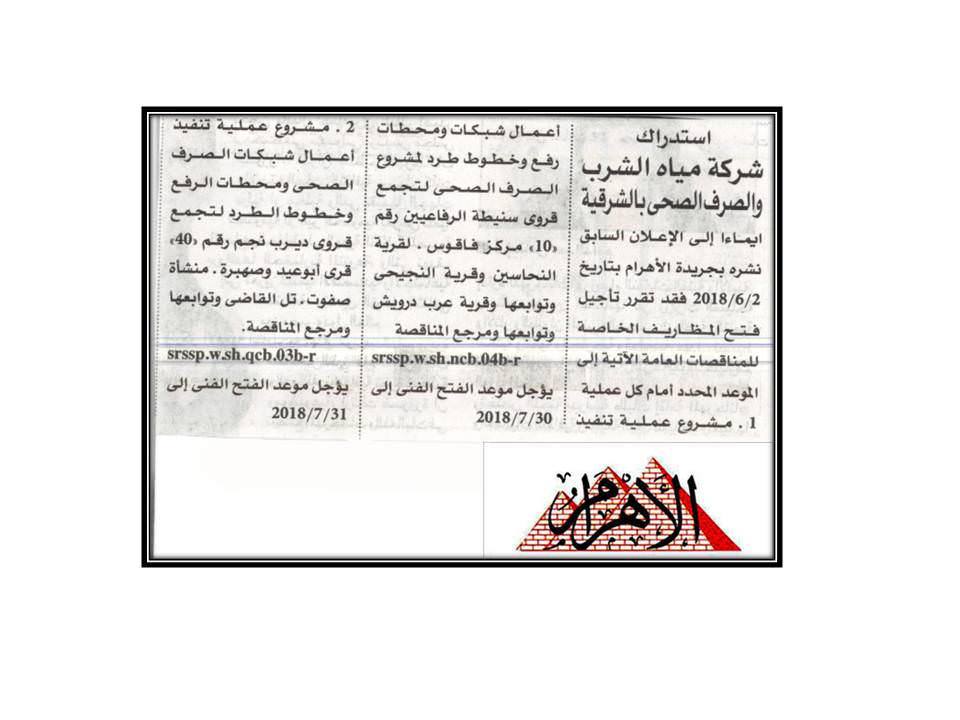 استدراك
شركة مياه الشرب
والصرف الصحى بالشرقية
ايماءا إلى الإعلان السابق
نشره بجريدة الأهرام بتاريخ
2018/6/2 فقد تقرر تأجيل
فتح المظاريف الخاصة
للمناقصات العامة الآتية إلى
الموعد المحدد أمام كل عملية
1 . مشروع عملية تنفيذ
أعمال شبكات ومحطات
رفع وخطوط طرد لمشروع
الصرف الصحى لتجمع
قروى سنيطة الرفاعيين رقم
«10» مركز فاقوس . لقرية
النحاسين وقرية النجيحى
وتوابعها وقرية عرب درويش
وتوابعها ومرجع المناقصة
srssp.w.sh.ncb.04b-r
يؤجل موعد الفتح الفنى إلى
2018/7/30
2 . مشروع عملية تنفيذ
أعمال شبكات الصرف
الصحى ومحطات الرفع
وخطوط الطرد لتجمع
قروى ديرب نجم رقم «40»
قرى أبوعيد وصهبرة . منشأة
صفوت . تل القاضى وتوابعها
ومرجع المناقصة.
srssp.w.sh.qcb.03b-r
يؤجل موعد الفتح الفنى إلى
2018/7/31
الأهرام